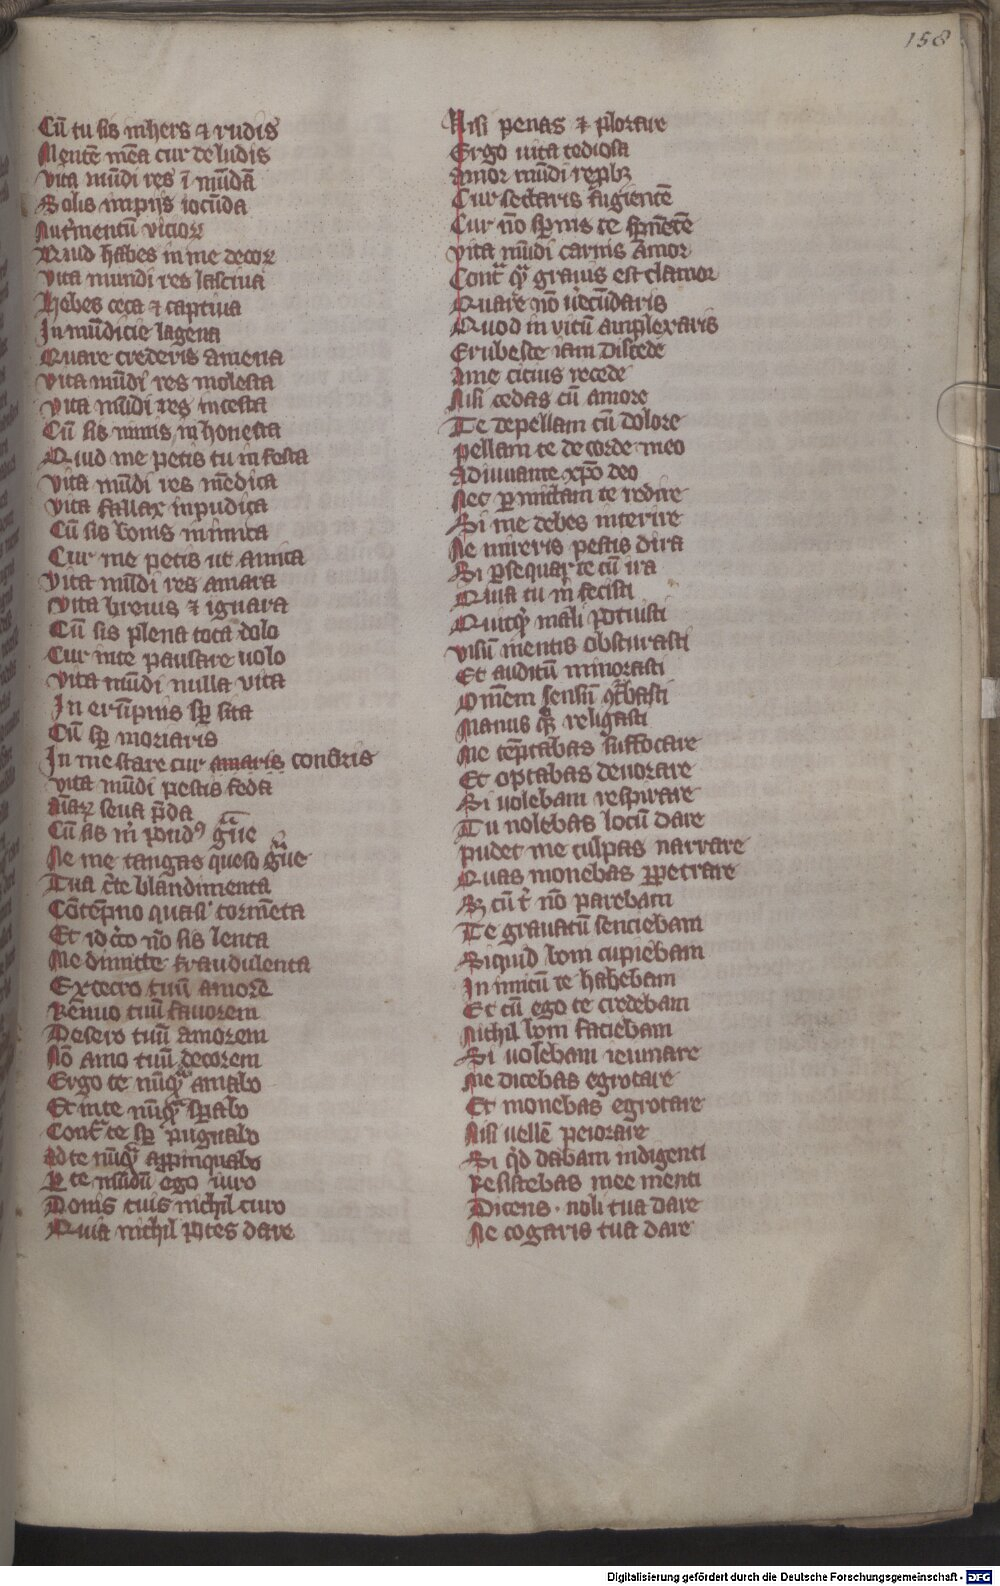 158
Cū tu sis inhers ⁊ rudis
Mentē mēa cur deludis
vita mūdi res ī mūdā
Solis impijs iocūda
Nutͥmentū vicioꝝ
Quid habes in me decoꝝ
vita mundi res lasciua
Hebes ceca ⁊ captiua
Jn mūdicie lagena
Quare crederis amena
vita mūdi res molesta
vita mūdi res incesta
Cū sis nimis in honesta
Quid me petis tu in festa
vita mūdi res mēdica
vita fallax inpudica
Cū sis bonis inimica
Cur me petis ut amica
vita mūdi res amara
vita breuis ⁊ ignara
Cū sis plena tota dolo
Cur inte pausare uolo
vita mūdi nulla vita
In
Cū sꝑ moriaris
In me stare cur amaris conaris
vita mūdi pestis feda
Aīaꝝ seua p̄da
Cū sis m̄ pondꝰ
Ne me tangas queso
Tua c̄te blandimenta
Cōtēpno quasi tormēta
Et idc̄co nō sis lenta
Me dimitte fraudulenta
Execro tuū amorē
Rēnuo tuū fauorem
Desero tuū amorem
Nō amo tuū decorem
Ergo te nūqᷓ amabo
Et inte nūqᷓ sꝑabo
Contͣ te sꝑ pugnabo
Ad te nūqᷓ aꝓpinquabo
Ꝑ te mūdū ego iuro
Donis tuis nichil curo
Quia nichil potes dare
Nisi penas ⁊ plorare
Ergo uita tediosa
Amor mūdi
Cur sectaris fugientē
Cur nō sꝑnis te sꝑnētē
vita mūdi carnis amor
Contͣ qᷓ grauis est clamor
Quare nō v̓ecūdaris
Quod in vitū amplexaris
Erubesce iam discede
Ame citius recede
Nisi cedas cū amore
Te depellam cū dolore
pellam te de corde meo
Adiuuante xp̄o deo
Nec ꝑmictam te redire
Si me debes interire
Ne mireris pestis dira
Si ꝑsequar te cū ira
Quia tu m̄ fecisti
Quitqᷓ mali potuisti
visū mentis obscurasti
Et auditū minorasti
Omēm sensū ꝯt͛basti
Manus qᷓꝫ religasti
Me tēptabas suffocare
Et optabas deuorare
Si uolebam respirare
Tu nolebas locū dare
pudet me culpas narrare
Quas monebas ꝑpetrare
Sꝫ cū tͥ nō parebam
Te grauatū senciebam
Siquid boni cupiebam
In imicū te habebam
Et cū ego te credebam
Nichil boni faciebam
Si uolebam ieiunare
Me dicebas egrotare
Et monebas egrotare
Nisi uellē peiorare
Si qͥd dabam indigenti
Resistebas mee menti
Dicens · noli tua dare
Ne cogaris tua dare
Digitalisierung gefördert durch die Deutsche Forschungsgemeinschaft - DFG